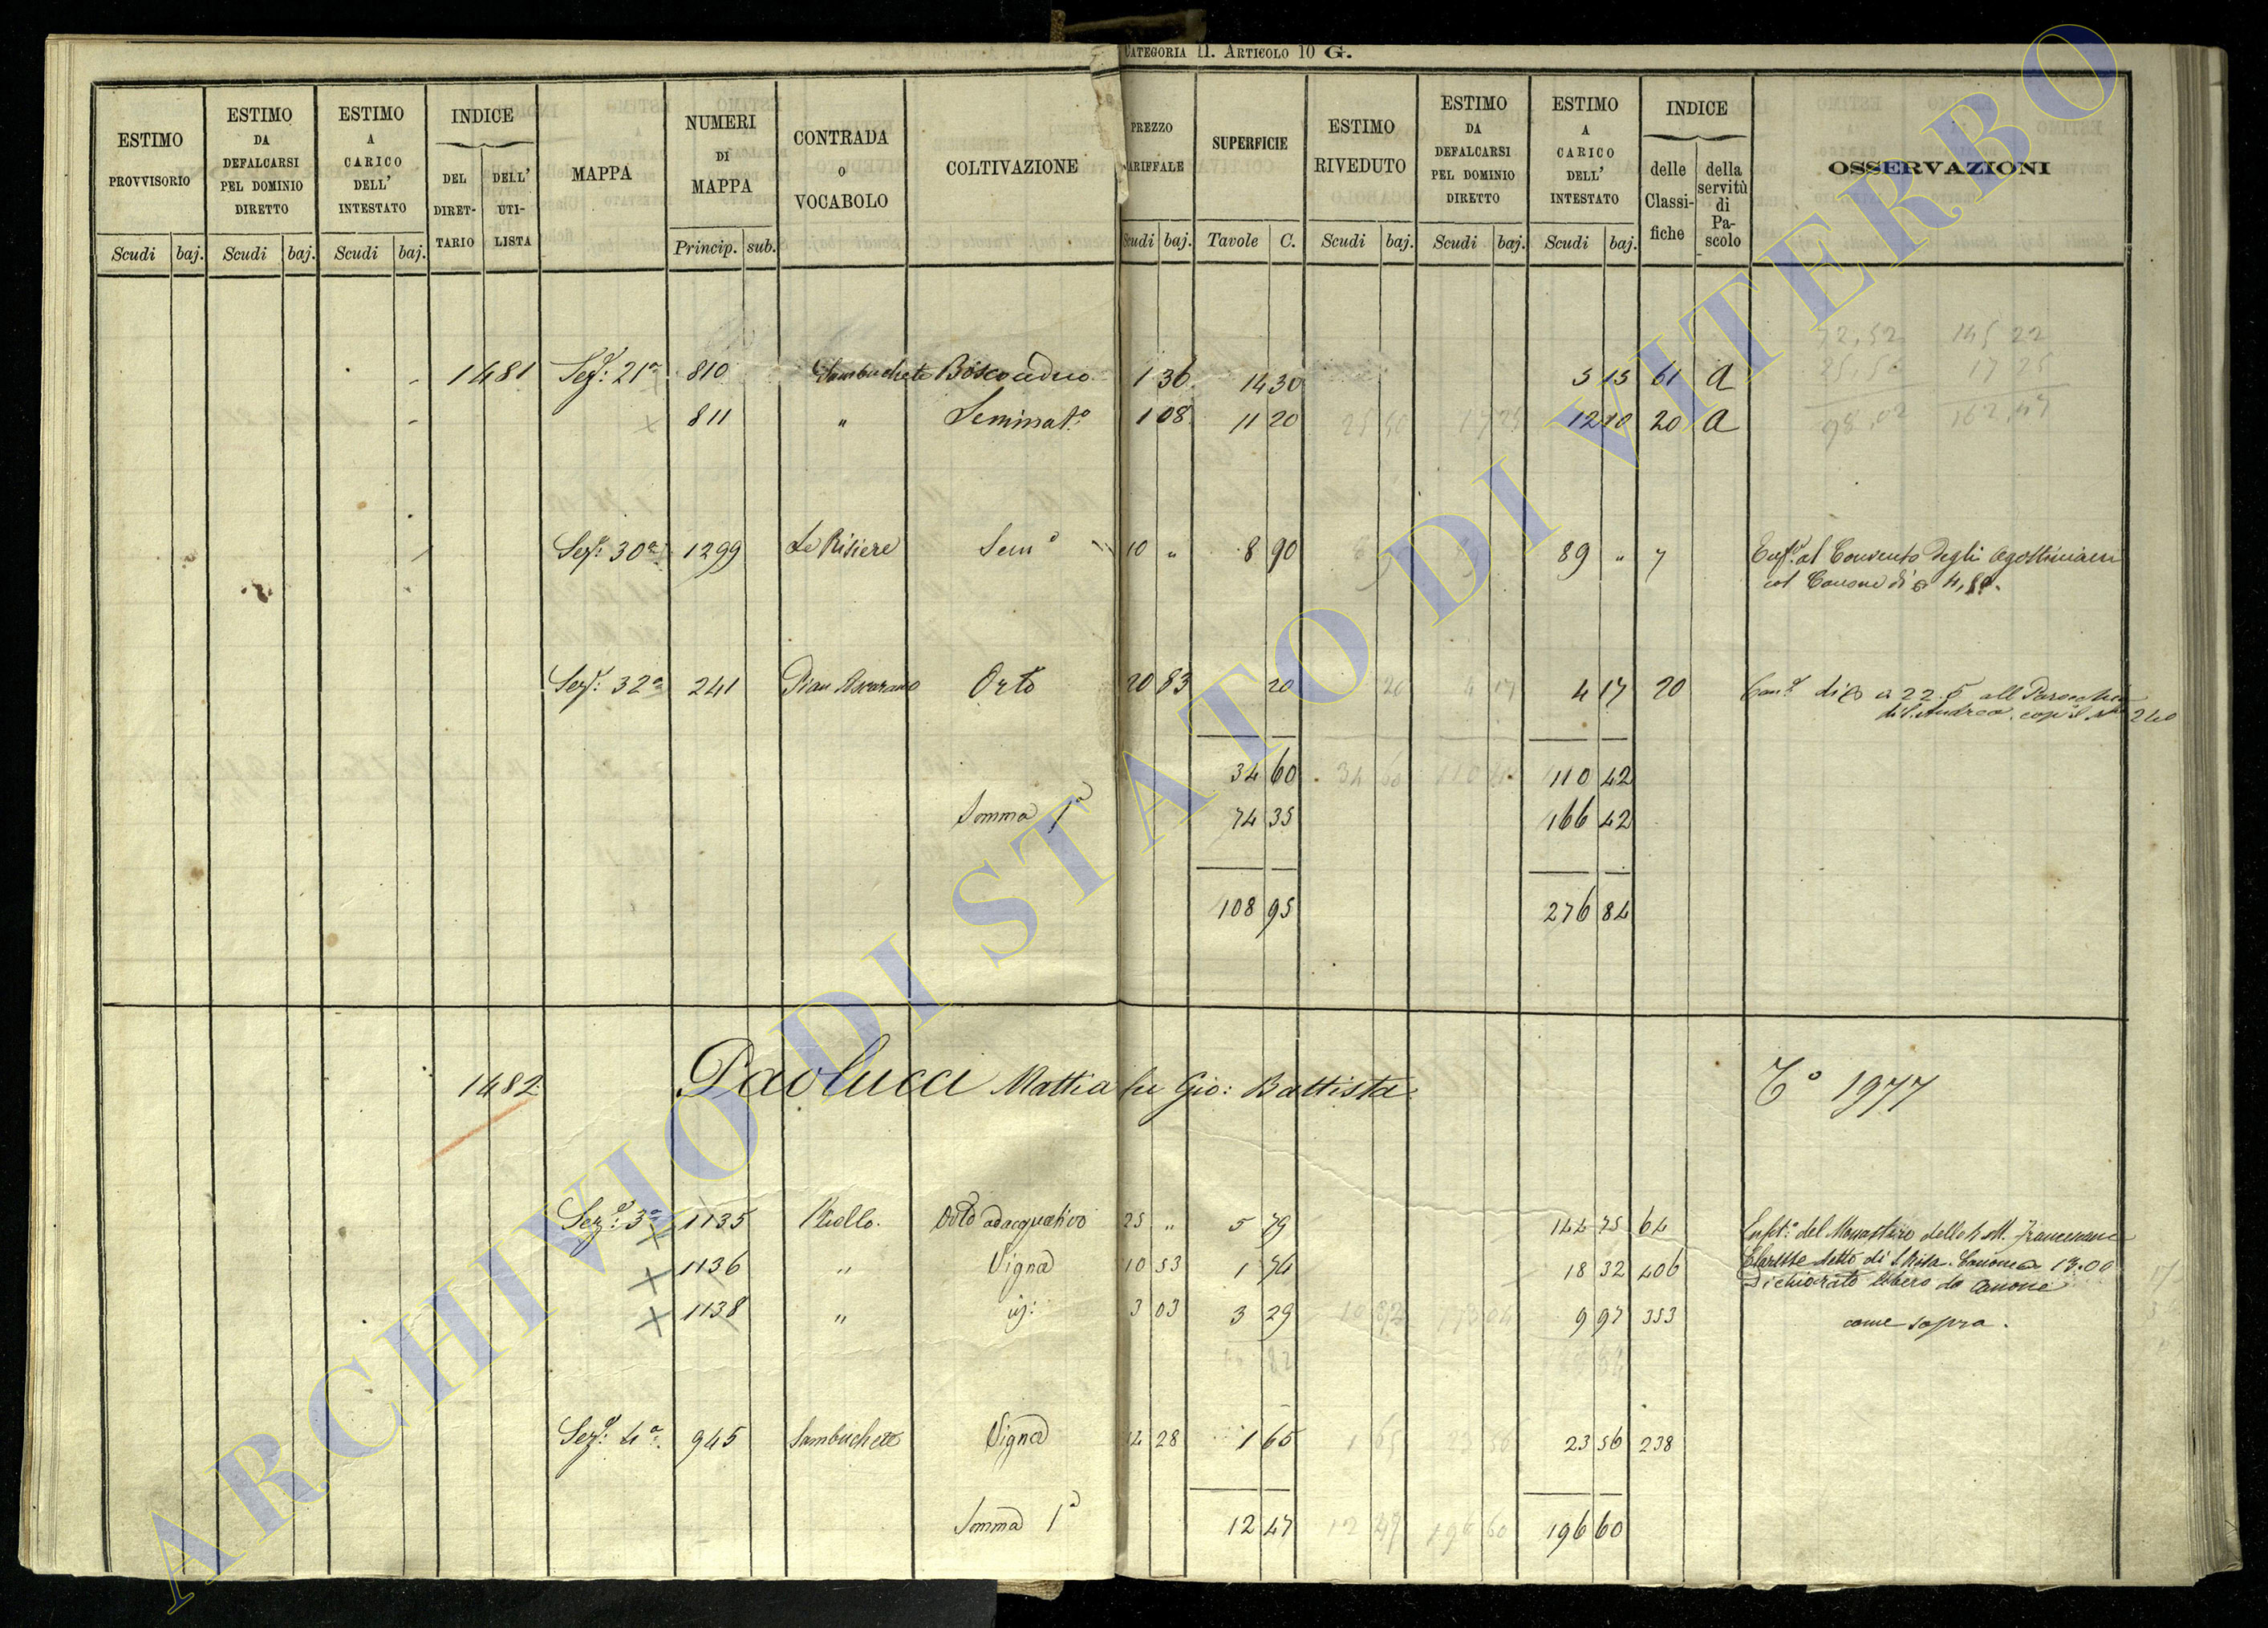 CATEGORIA II. ARTICOLO 10 G.
ESTIMO PROVVISORIO Scudi baj.
ESTIMO DA DEFALCARSI PEL DOMINIO DIRETTO Scudi baj.
ESTIMO A CARICO DELL' INTESTATO Scudi baj.
INDICE DEL DIRET-TARIO DELL' UTI-LISTA
MAPPA
NUMERI DI MAPPA Princip. sub.
CONTRADA O VOCABOLO
COLTIVAZIONE
PREZZO TARIFFALE Scudi baj.
SUPERFICIE Tavole C.
ESTIMO RIVEDUTO Scudi baj.
ESTIMO DA DEFALCARSI PEL DOMINIO DIRETTO Scudi baj.
ESTIMO A CARICO DELL' INTESTATO Scudi baj.
INDICE delle Classi-fiche della servitù di Pa-scolo
OSSERVAZIONI
72,52 145 22
1481 Sez.e: 21a 810 Sambuchete Bosco ceduo 1 36 14 30 5 15 61 a
811 " Seminat.o 1 08 11 20 12 10 20 a
Sez.e: 30a 1299 Le Risiere Sem.o 10 " 8 90 89 " 7 Enf.a al Convento degli Agostiniani
col Canone di
Sez.e: 32a 241 Pian Ascarano Orto 20 83 20 4 17 20
di S. Andrea 240
34 60 34 60 110 42 110 42
Somma 1a 74 35 166 42
108 95 276 84
1482 Paolucci Mattia fu Gio: Battista To 1977
Sez.e: 3a 1135 Riello. Orto adacquativo 25 " 5 79 144 75 64 Enfit.a del Monastero delle Francescane
1136 " Vigna 10 53 1 74 18 32 406 Clarisse detto di S. Rosa. Canone 13.00
Dichiarato libero da canone
1138 " id: 3 03 3 29 9 97 353 come sopra.
Sez.e: 4a 945 Sambuchete Vigna 14 28 1 65 23 56 238
Somma 1a 12 47 12 47 196 60 196 60
ARCHIVIO DI STATO DI VITERBO